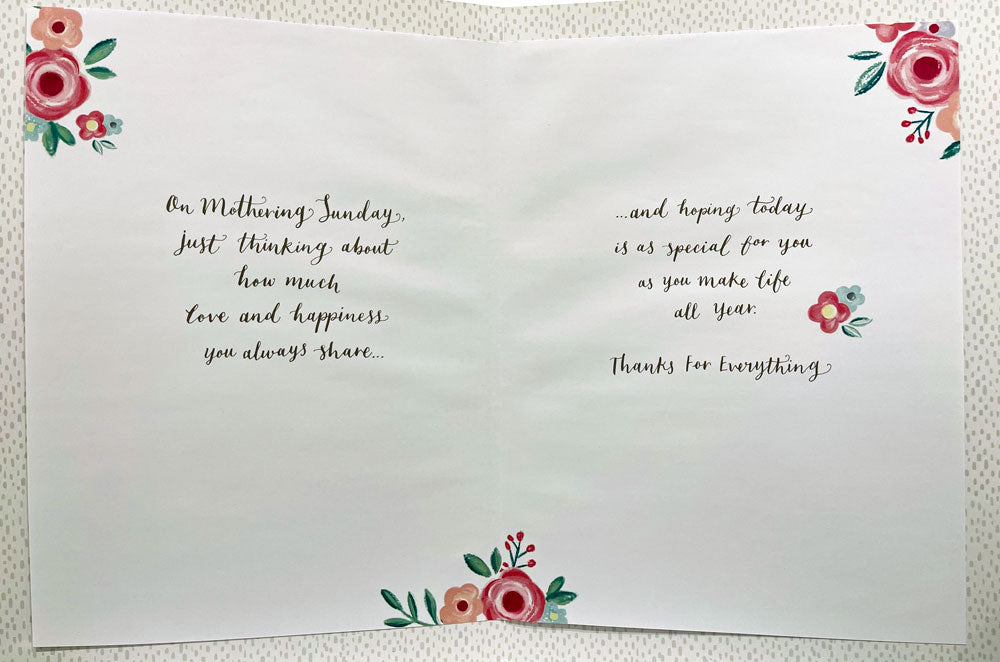 On Mothering Sunday,
just thinking about
how much
love and happiness
you always share...
...and hoping today
is as special for you
as you make life
all year.
Thanks For Everything